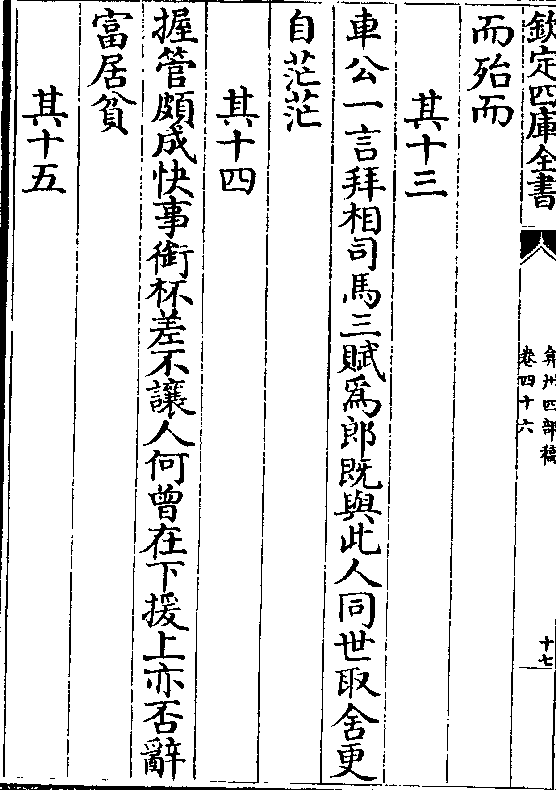 欽定四庫全書
弇州四部稿
卷四十六
十七
而殆而
其十三
車公一言拜相司馬三賦爲郎既與此人同世取舍更
自茫茫
其十四
握管頗成快事銜杯差不讓人何曾在下援上亦否辭
富居貧
其十五